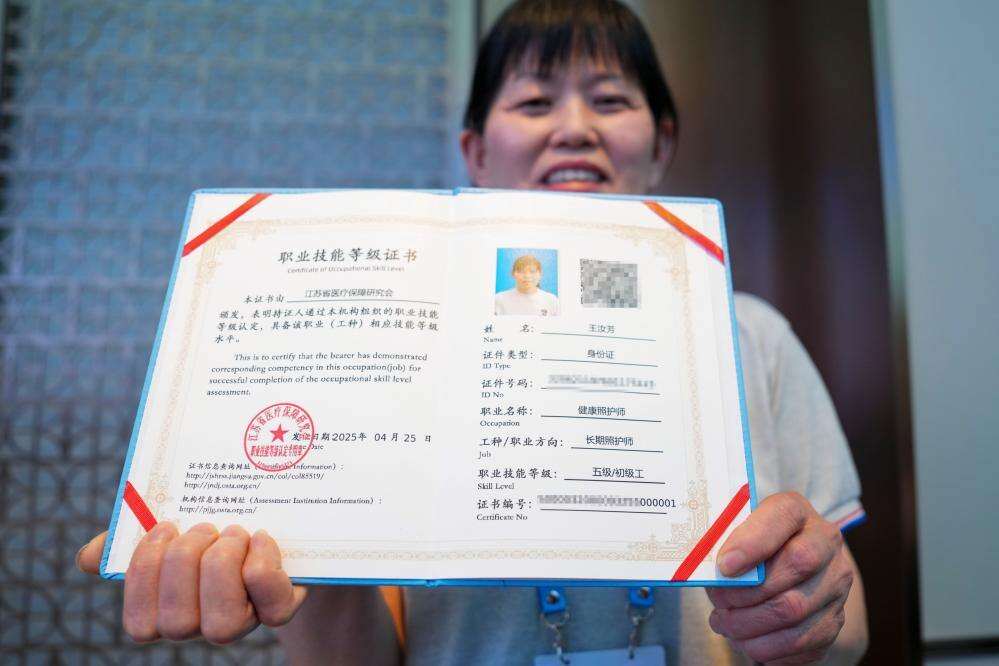 职业技能等级证书
Certificate of Occupational Skill Level
本证书由 江苏省医疗保障研究会
颁发，表明持证人通过本机构组织的职业技能
等级认定，具备该职业（工种）相应技能等级
水平。
This is to certify that the bearer has demonstrated
corresponding competency in this occupation(job) for
successful completion of the occupational skill level
assessment.
江苏省医疗保障研究会
职业技能等级认定专用章
日期2025年 04 月 25 日
Date
证书信息查询网址（Information）：
http://jshrss.jiangsu.gov.cn/col/col85519/
http://jndj.osta.org.cn/
机构信息查询网址（Assessment Institution Information）：
http://pjjg.osta.org.cn/
姓 名： 王汝芳
Name
证件类型： 身份证
ID Type
证件号码：
ID No
职业名称： 健康照护师
Occupation
工种/职业方向： 长期照护师
Job
职业技能等级： 五级/初级工
Skill Level
证书编号： 000001
Certificate No